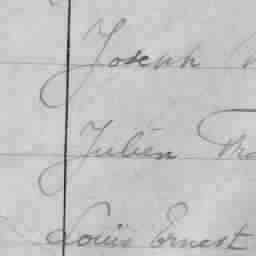 Joseph
Julien
Louis Ernest